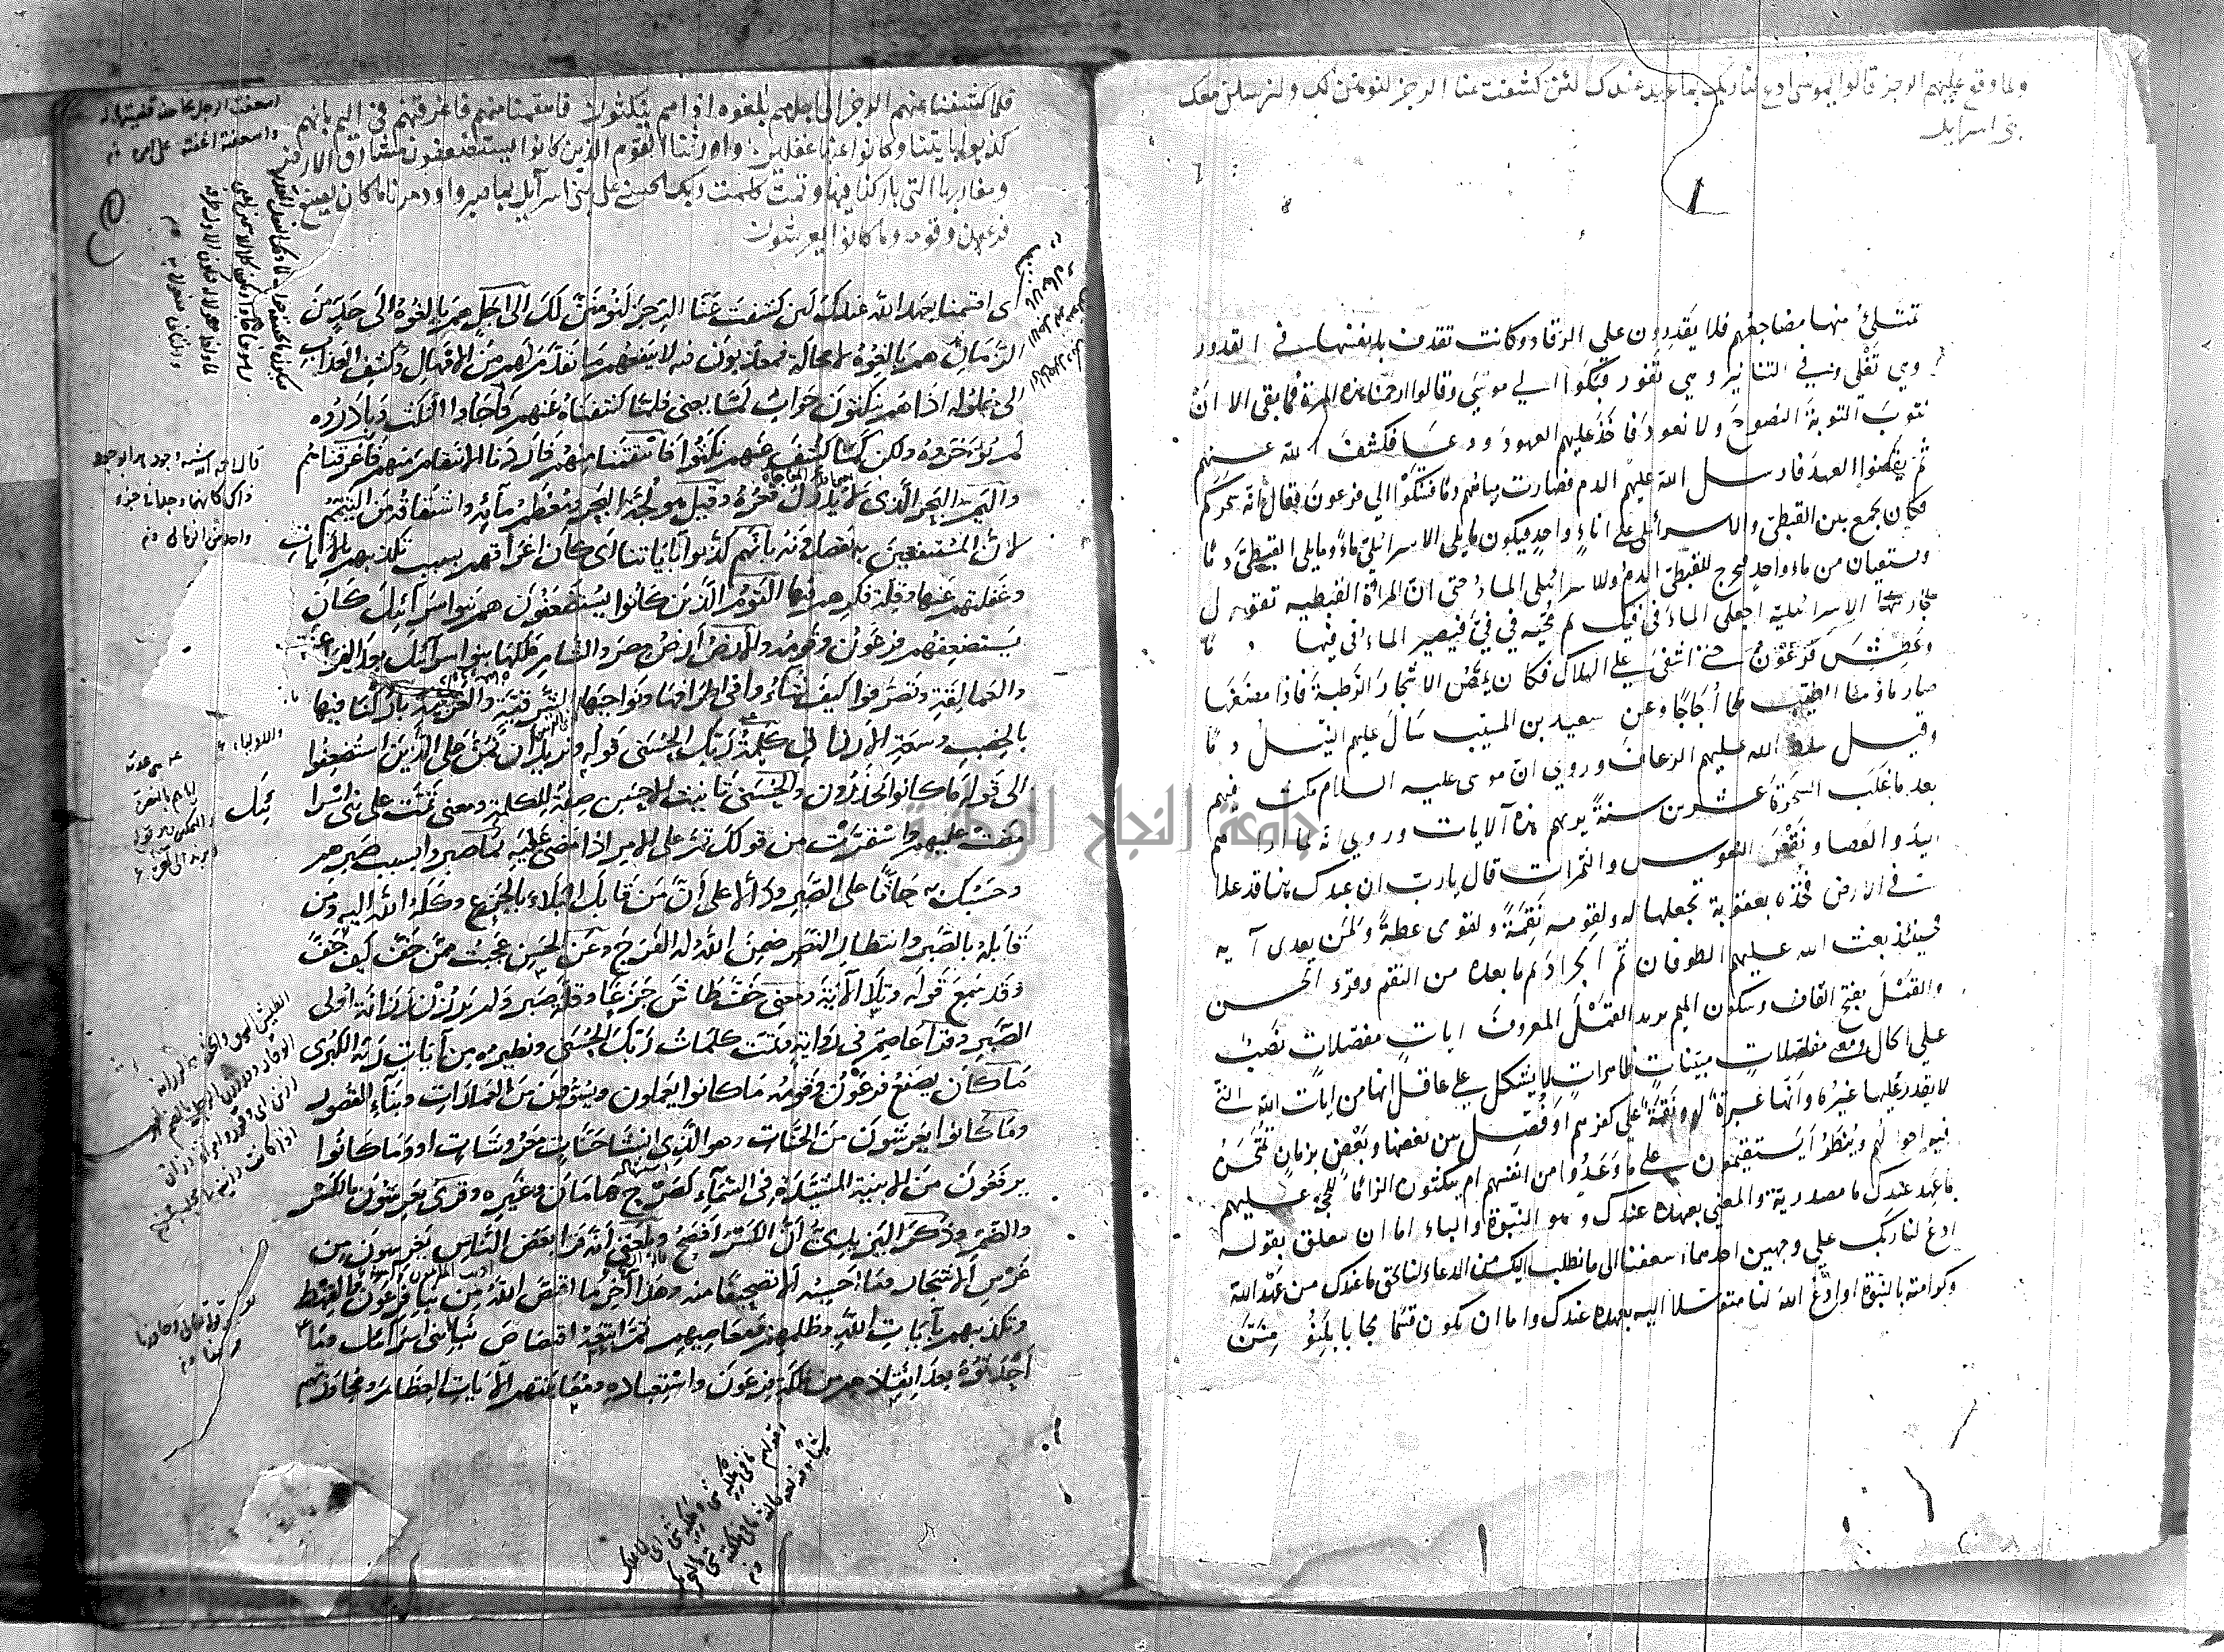 ولما وقع عليهم الرجز قالوا يموسى ادع لنا ربك بما عهد عندك لئن كشفت عنا الرجز لنؤمنن لك ولنرسلن معك
بنى اسرايل
تمتلئ منها مضاجعهم فلا يقدرون على الرقاد وكانت تقذف بانفسها في القدور
وهي تغلي وفي التنانير وهي تفور فبكوا الي موسى وقالوا ارحمنا هذه المرة فما بقى الا ان
نتوب التوبة النصوح ولا نعود فاخذ عليهم العهود ودعا فكشف الله عنهم
ثم نقضوا العهد فارسل الله عليهم الدم فصارت مياههم دما فشكوا الي فرعون فقال انه سحركم
فكان يجمع بين القبطي والاسرائيلي على اناء واحد فيكون ما يلى الاسرائيلي ماء وما يلى القبطي دما
ويستقيان من ماء واحد فيخرج للقبطي الدم وللاسرائيلى الماء حتى ان المراة القبطيه تقول
لجارتها الاسرائيلية اجعلى الماء في فيك ثم مجيه في في فيصير الماء فى فيها دما
وعطش فرعون حتى اشفى على الهلاك فكان يمص الاشجار الرطبة فاذا مضغها
صار ماؤها الطيب ملحا اجاجا وعن سعيد بن المسيب سال عليهم النيل دما
وقيل سلط الله عليهم الرعاف وروي ان موسى عليه السلام مكث فيهم
بعد ما غلب السحرة عشرين سنة يريهم هذه الآيات وروي انه لما اراهم
اليد والعصا ونقص النفوس والثمرات قال يارب ان عبدك هذا قد علا
في الارض فخذه بعقوبة تجعلها له ولقومه نقمة ولقومى عظة ولمن بعدى آية
فحينئذ بعث الله عليهم الطوفان ثم الجراد ثم ما بعده من النقم وقرء الحسن
والقمل بفتح القاف وسكون الميم يريد القمل المعروف ايات مفصلات نصب
على الحال ومعنى مفصلات مبينات ظاهرات لا يشكل على عاقل انها من ايات الله التي
لا يقدر عليها غيره وانها عبرة لهم ونقمة على كفرهم او فصل بين بعضها وبعض بزمان تمتحن
فيه احوالهم وينظر ايستقيمون على ما وعدوا من انفسهم ام ينكثون الزاما للحجة عليهم
بما عهد عندك ما مصدرية والمعنى بعهده عندك وهو النبوة والباء اما ان تتعلق بقوله
ادع لنا ربك على وجهين احدهما اسعفنا الى ما نطلب اليك من الدعاء لنا بحق ما عندك من عهد الله
وكرامته بالنبوة او ادع الله لنا متوسلا اليه بعهده عندك واما ان يكون قسما مجابا بلنؤمنن
فلما كشفنا عنهم الرجز الى اجل هم بلغوه اذا هم ينكثون فانتقمنا منهم فاغرقنهم في اليم بانهم
كذبوا بايتنا وكانوا عنها غفلين واورثنا القوم الذين كانوا يستضعفون مشارق الارض
ومغاربها التى باركنا فيها وتمت كلمت ربك الحسنى على بنى اسرآيل بما صبروا ودمرنا ما كان يصنع
فرعون وقومه وما كانوا يعرشون
اى اقسمنا بعهد الله عندك لئن كشفت عنا الرجز لنؤمنن لك الى اجل هم بالغوه الى حد من
الزمان هم بالغوه لا محالة فمعذبون فيه لا ينفعهم ما تقدم لهم من الامهال وكشف العذاب
الى حلوله اذا هم ينكثون جواب لما يعنى فلما كشفناه عنهم فاجاوا النكث وبادروه
لم يؤخروه ولكن لما كشف عنهم نكثوا فانتقمنا منهم فاردنا الانتقام منهم فاغرقناهم
واليم البحر الذى لا يدرك قعره وقيل هو لجة البحر ومعظم مائه واشتقاقه من التيمم
لان المستنفعين به يقصدونه بانهم كذبوا بآياتنا اى كان اغراقهم بسبب تكذيبهم بالآيات
وغفلتهم عنها وقلة فكرهم فيها القوم الذين كانوا يستضعفون هم بنوا اسرائيل كان
يستضعفهم فرعون وقومه والارض ارض مصر والشام ملكها بنوا اسرائيل بعد الفراعنة
والعمالقة وتصرفوا كيف شاءوا في اطرافها ونواحيها الشرقية والغربية باركنا فيها
بالخصب وسعة الارزاق كلمة ربك الحسنى قوله ونريد ان نمن على الذين استضعفوا
الى قوله ما كانوا يحذرون والحسنى تانيث الاحسن صفة للكلمة ومعنى تمت على بنى اسرا
ئيل
مضت عليهم واستمرت من قولك تم على الامر اذا مضى عليه بما صبروا بسبب صبرهم
وحسبك به حاثا على الصبر ودالا على ان من قابل البلاء بالجزع وكله الله اليه ومن
قابله بالصبر وانتظار النصر ضمن الله له الفرج وعن الحسن عجبت ممن خف كيف خف
وقد سمع قوله وتلا الآية ومعنى خف طاش جزعا وقلة صبر ولم يرزن رزانة اولى
الصبر وقرا عاصم فى رواية وتمت كلمات ربك الحسنى ونظيره من آيات ربه الكبرى
ما كان يصنع فرعون وقومه ما كانوا يعملون ويسوون من العمارات وبناء القصور
وما كانوا يعرشون من الجنات وهو الذى انشا جنات معروشات او وما كانوا
يرفعون من الابنية المشيدة فى السماء كصرح هامان وغيره وقرئ يعرشون بالكسر
والضم وذكر اليزيدى ان الكسر افصح وبلغني انه قرا بعض الناس يغرسون من
غرس الاشجار وما احسبه الا تصحيفا منه وهذا آخر ما اقتص الله من نبا فرعون والقبط
وتكذيبهم بآيات الله وظلمهم ومعاصيهم ثم اتبعه اقتصاص نبا بنى اسرائيل وما
احدثوه بعد انقاذهم من ملكة فرعون واستعباده ومعاينتهم الآيات العظام ومجاوزتهم
جامعة النجاح الوطنية